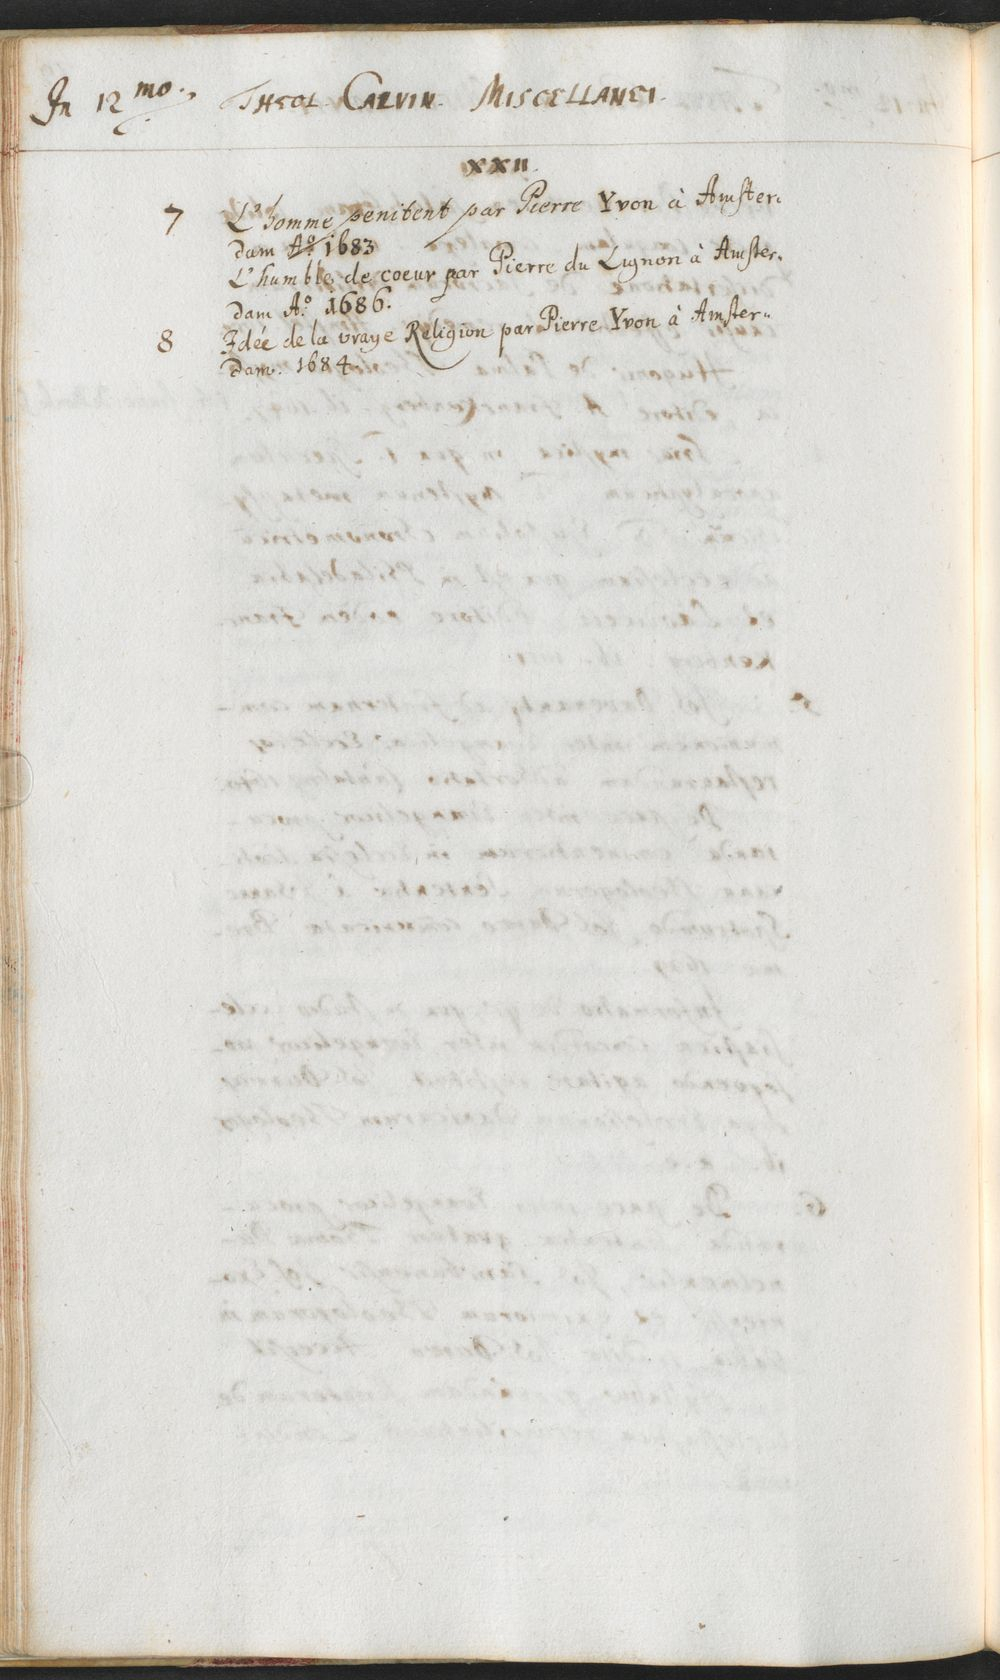 In 12 mo. THEOL. CALVIN. MISCELLANEI.
XXII.
7 L'homme penitent par Pierre Yvon à Amster„
dam Aº. 1683
L'humble de coeur par Pierre du Lignon à Amster„
dam Aº. 1686.
8 Idée de la vraye Religion par Pierre Yvon à Amster„
dam. 1684.